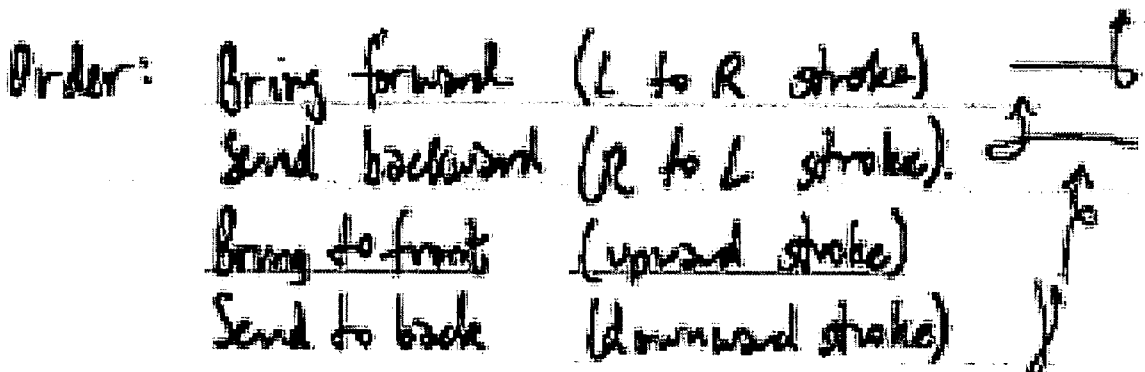 Order: Bring forward (L to R stroke)
Send backward (R to L stroke).
Bring to front (upward stroke)
Send to back (downward stroke)